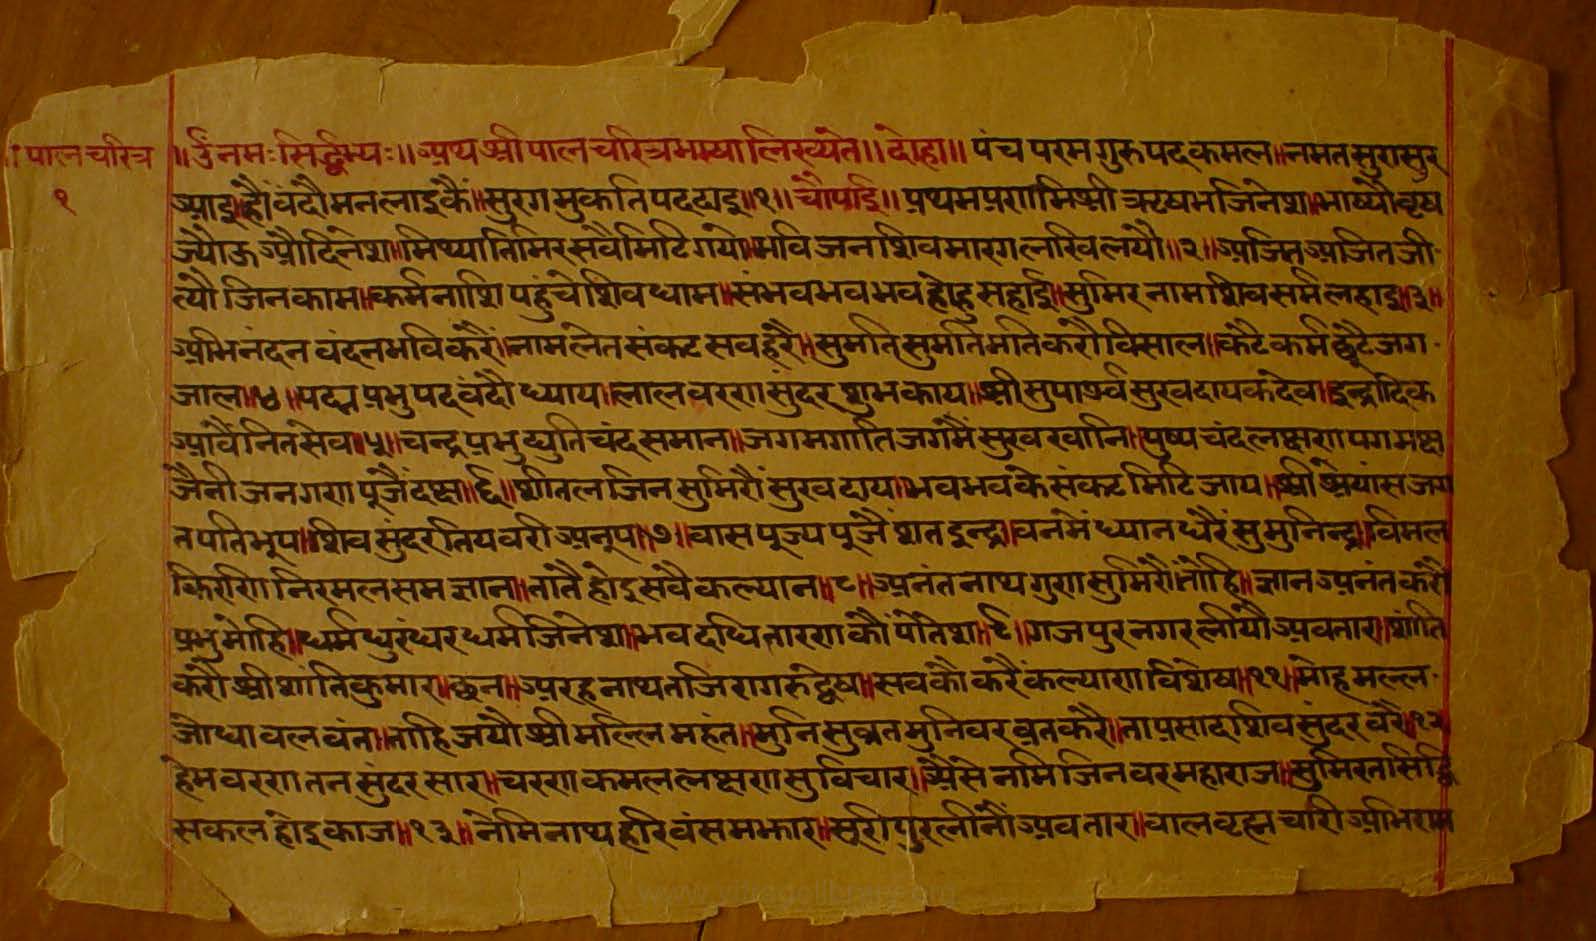 । पालचरित्र
१
॥ॐनमः सिद्धेभ्यः॥ अथ श्रीपालचरित्रभाषा लिख्येते॥ दोहा॥ पंच परम गुरु पद कमल॥ नमत सुरासुर
आइ॥ हौं वंदौं मन लाइकैं॥ सुरग मुकति पद द्यइ॥१॥ चौपाई॥ प्रथम प्रणामि श्री ऋषभ जिनेश॥ भाष्यौ वृष
ज्यौ ऊग्यौ दिनेश॥ मिथ्या तिमिर सवै मिटि गयो॥ भवि जन शिव मारग लखि लयौ॥२॥ अजित अजित जी
त्यौ जिन काम॥ कर्म नाशि पहुंचे शिव धाम॥ संभव भव भव होहु सहाई॥ सुमिर नाम शिव सर्म लहाइ॥३॥
अभिनंदन वंदन भवि करैं॥ नाम लेत संकट सव हरै॥ सुमति सुमति मति करौ विसाल॥ कटै कर्म छूटै जग
जाल॥४॥ पद्म प्रभु पद वंदौ ध्याय॥ लाल वरण सुंदर शुभ काय॥ श्री सुपार्श्व सुखदायक देव॥ इन्द्रादिक
आवैं नित सेव॥५॥ चन्द्र प्रभु द्युति चंद समान॥ जगमगाति जगमैं सुख खानि॥ पुष्प चंद लक्षण पग मक्ष
जैनी जन गण पूजैं दक्ष॥६॥ शीतल जिन सुमिरौं सुखदाय॥ भव भव के संकट मिटि जाय॥ श्री श्रेयांस जग
त पति भूप॥ शिव सुंदरि तिय वरी अनूप॥७॥ वासपूज्य पूजैं शत इन्द्र॥ वनमें ध्यान धरैं सु मुनिन्द्र॥ विमल
किरणि निरमल सम ज्ञान॥ तातै होइ सवै कल्यान॥८॥ अनंतनाथ गुण सुमिरौं तोहि॥ ज्ञान अनंत करौ
प्रभु मोहि॥ धर्म धुरंधर धर्म जिनेश॥ भव दधि तारण कौं पोतेश॥९॥ गजपुर नगर लीयौ अवतार॥ शांति
करौ श्री शांति कुमार॥ छन॥ अरहनाथ तजि राग रु द्वेष॥ सवकौ करैं कल्याण विशेष॥११॥ मोह मल्ल
जोधा वलवंत॥ ताहि जयौ श्री मल्लि महंत॥ मुनि सुव्रत मुनिवर व्रत करै॥ ता प्रसाद शिव सुंदर वरै॥१२
हेम वरण तन सुंदर सार॥ चरण कमल लक्षण सुविचार॥ असै नमि जिनवर महाराज॥ सुमिरत सिद्धि
सकल होइ काज॥१३॥ नेमिनाथ हरिवंस मझार॥ सूरीपुर लीनौं अवतार॥ वाल वृह्मचारी अभिराम